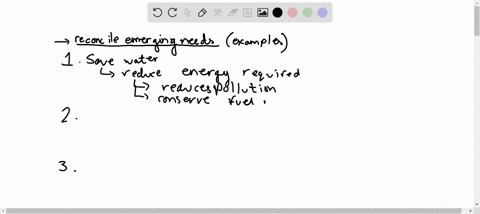 → reconcile emerging needs (examples)
1. Save water
↳ reduce energy required
↳ reduces pollution
↳ conserve fuel
2.
3.